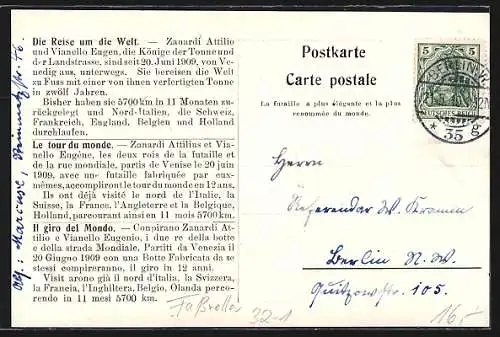 Die Reise um die Welt. — Zanardi Attilio
und Vianello Eugen, die Könige der Tonne und
der Landstrasse, sind seit 20. Juni 1909, von Ve-
nedig aus, unterwegs. Sie bereisen die Welt
zu Fuss mit einer von ihnen verfertigten Tonne
in zwölf Jahren.
Bisher haben sie 5700 km in 11 Monaten zu-
rückgelegt und Nord-Italien, die Schweiz,
Frankreich, England, Belgien und Holland
durchlaufen.
Le tour du monde. — Zanardi Attilius et Via-
nello Eugène, les deux rois de la futaille et
de la rue mondiale, partis de Venise le 20 juin
1909, avec une futaille fabriquée par eux-
mêmes, accompliront le tour du monde en 12 ans.
Ils ont déjà visité le nord de l'Italie, la
Suisse, la France, l'Angleterre et la Belgique,
Holland, parcourant ainsi en 11 mois 5700 km.
Il giro del Mondo. — Conpirano Zanardi At-
tilio e Vianello Eugenio, i due re della botte
e della strada Mondiale. Partiti da Venezia il
20 Giugno 1909 con una Botte Fabricata da se
stessi compireranno, il giro in 12 anni.
Visit arono già il nord d'italia, la Svizzera,
la Francia, l'Inghilterra, Belgio, Olanda perco-
rendo in 11 mesi 5700 km.
Postkarte
Carte postale
La futaille a plus élégante et la plus
renommée du monde.
5 5
DEUTSCHES REICH
BERLIN
* 35 g
Herrn
Referendar W.
Berlin N. W.
Quitzowstr. 105.
Abs: Marcuse,
Faßroller
32-1
16,-